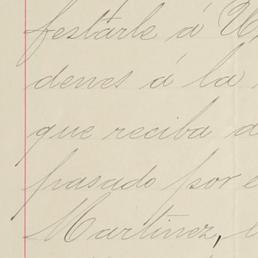 festarle á U
denes á la
que reciba
pasado por e
Martinez,